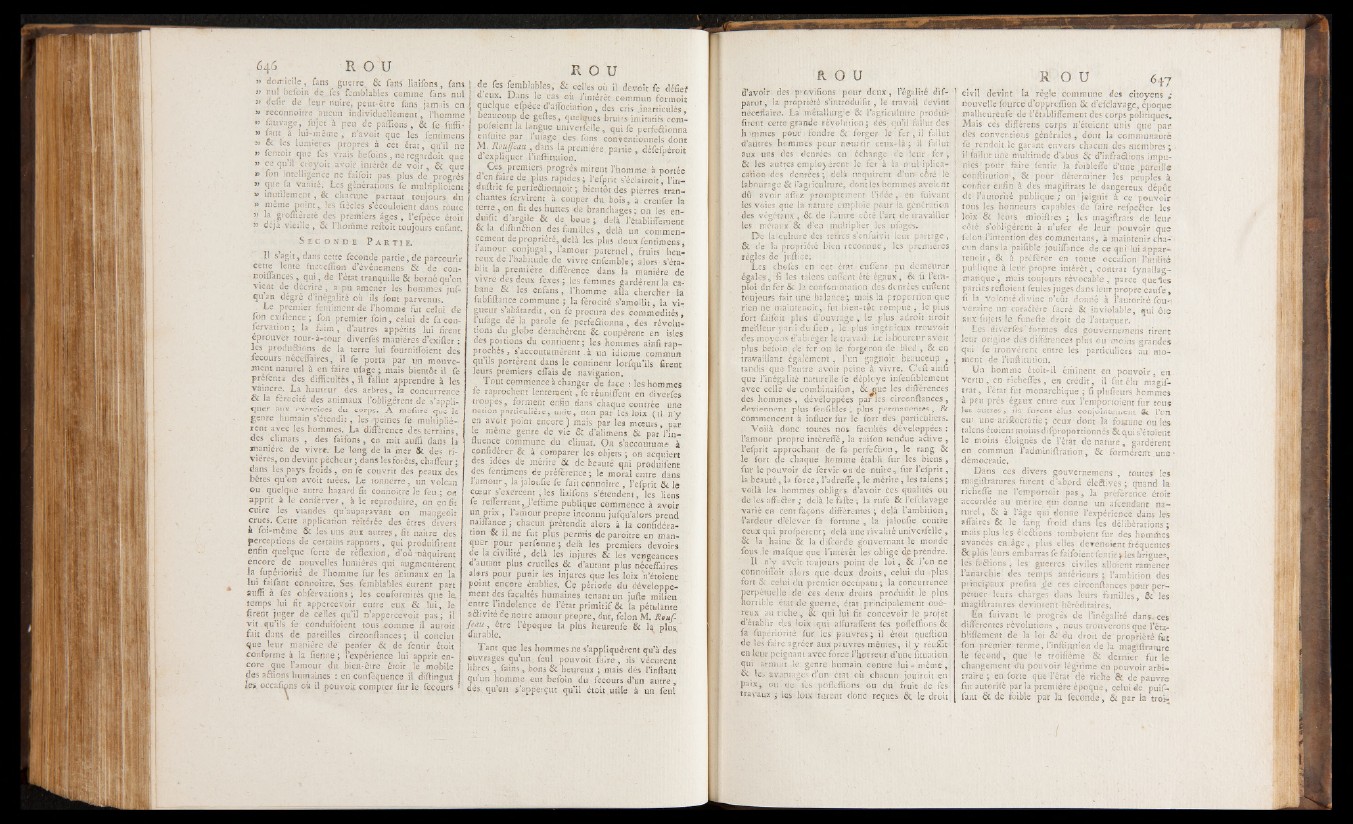 646 R O U
» domicile, ſans guerre & ſans liaiſons, ſans
» nul beſoin de ſes ſemblables comme ſans nul
» deſir de leur nuire, peut-être ſans jamais en
» reconnoître aucun individuellement, l'homme
» ſauvage, ſujet à peu de paſſions, & ſe ſuffi-
» ſant à lui-même, n'avoit que les ſentimens
» & les lumières propres à cet état, qu'il ne
» ſentoit que ſes vrais beſoins, ne regardoit que
» ce qu'il croyoit avoir intérêt de voir, & que
» ſon intelligence ne faiſoit pas plus de progrès
» que ſa vanité. Les générations ſe multiplioient
» inutilement, & chacune partant toujours du
» même point, les ſiècles s'écouloient dans toute
» la groſſièreté des premiers âges, l'eſpèce étoit
» déjà vieille, & l'homme reſtoit toujours enfant.
SECONDE PARTIE.
Il s'agit, dans cette ſeconde partie, de parcourir
cette lente ſucceſſion d'événemens & de con-
noiſſances, qui, de l'état tranquille & borné qu'on
vient de décrire, a pu amener les hommes juſ-
qu'au degré d'inégalité où ils ſont parvenus.
Le premier ſentiment de l'homme fut celui de
ſon exiſtence; ſon premier ſoin, celui de ſa con-
ſervation; la faim, d'autres appétits lui firent
éprouver tour-à-tour diverſes manières d'exiſter:
les productions de la terre lui fourniſſoient des
ſecours néceſſaires, il ſe porta par un mouve-
ment naturel à en faire uſage; mais bientôt il ſe
préſenta des difficultés, il fallut apprendre à les
vaincre. La hauteur des arbres, la concurrence
& la férocité des animaux l'obligèrent de s'appli-
quer aux exercices du corps. A meſure que le
genre humain s'étendit, les peines ſe multipliè-
rent avec les hommes. La différence des terrains,
des climats, des ſaiſons, en mit auſſi dans la
manière de vivre. Le long de la mer & des ri-
vières, on devint pêcheur; dans les forêts, chaſſeur;
dans les pays froids, on ſe couvrit des peaux des
bêtes qu'on avoit tuées. Le tonnerre, un volcan
ou quelque autre hazard fit connoître le feu; on
apprit à le conſerver, à le reproduire, on en fit
cuire les viandes qu'auparavant on mangeoit
crues. Cette application réitérée des êtres divers
à ſoi-même & les uns aux autres, fit naître des
perceptions de certains rapports, qui produiſirent
enfin quelque ſorte de réflexion, d'où naquirent
encore de nouvelles lumières qui augmentèrent
la ſupériorité de l'homme ſur les animaux en la
lui faiſant connoître. Ses ſemblables eurent part
auſſi à ſes obſervations; les conformités que le
temps lui fit appercevoir entre eux & lui, le
firent juger de celles qu'il n'appercevoit pas; il
vit qu'ils ſe conduiſoient tous comme il auroit
fait dans de pareilles circonſtances; il conclut
que leur manière de penſer & de ſentir étoit
conforme à la ſienne; l'expérience lui apprit en-
core que l'amour du bien-être étoit le mobile
des actions humaines: en conſéquence il diſtingua
les occaſions où il pouvoit compter ſur le ſecours
R O U
de ſes ſemblables, & celles où il devoit ſe défier
d'eux. Dans le cas où l'intérêt commun formoit
quelque eſpèce d'aſſociation, des cris inarticulés,
beaucoup de geſtes, quelques bruits imitatifs com-
poſoient la langue univerſelle, qui ſe perfectionna
enſuite par l'uſage des ſons conventionnels dont
M. Rouſſeau, dans la première partie, déſeſpéroit
d'expliquer l'inſtitution.
Ces premiers progrès mirent l'homme à portée
d'en faire de plus rapides; l'eſprit s'éclairoit, l'in-
duſtrie ſe perfectionnoit; bientôt des pierres tran-
chantes ſervirent à couper du bois, à creuſer la
terre, on fit des huttes de branchages; on les en-
duiſit d'argile & de boue; delà l'établiſſement
& la diſtinction des familles, delà un commen-
cement de propriété, delà les plus doux ſentimens,
l'amour conjugal, l'amour paternel, fruits heu-
reux de l'habitude de vivre enſemble; alors s'éta-
blit la première différence dans la manière de
vivre des deux ſexes; les femmes gardèrent la ca-
bane & les enfans, l'homme alla chercher la
ſubſiſtance commune; la férocité s'amollit, la vi-
gueur s'abâtardit, on ſe procura des commodités,
l'uſage de la parole ſe perfectionna, des révolu-
tions du globe détachèrent & coupèrent en isles
des portions du continent; les hommes ainſi rap-
prochés, s'accoutumèrent à un idiome commun
qu'ils portèrent dans le continent lorſqu'ils firent
leurs premiers eſſais de navigation.
Tout commence à changer de face: les hommes
ſe raprochent lentement, ſe réuniſſent en diverſes
troupes, forment enfin dans chaque contrée une
nation particulière, unie, non par les loix (il n'y
en avoit point encore) mais par les mœurs, par
le même genre de vie & d'alimens & par l'in-
fluence commune du climat. On s'accoutume à
conſidérer & à comparer les objets; on acquiert
des idées de mérite & de beauté qui produiſent
des ſentimens de préférence; le moral entre dans
l'amour, la jalouſie ſe fait connoître, l'eſprit & le
cœur s'exercent, les liaiſons s'étendent, les liens
ſe reſſerrent, l'eſtime publique commence à avoir
un prix, l'amour propre inconnu juſqu'alors prend
naiſſance; chacun prétendit alors à la conſidéra-
tion & il ne fut plus permis de paroître en man-
quer pour perſonne; delà les premiers devoirs
de la civilité, delà les injures & les vengeances
d'autant plus cruelles & d'autant plus néceſſaires
alors pour punir les injures que les loix n'étoient
point encore établies. Ce période du développe-
ment des facultés humaines tenant un juſte milieu
entre l'indolence de l'état primitif & la pétulante
activité de notre amour propre, dut, ſelon M. Rouſ-
ſeau, être l'époque la plus heureuſe & la plus
durable.
Tant que les hommes ne s'appliquèrent qu'à des
ouvrages qu'un ſeul pouvoit faire, ils vécurent
libres, ſains, bons & heureux; mais dès l'inſtant
qu'un homme eut beſoin du ſecours d'un autre,
dès qu'on s'apperçut qu'il étoit utile à un ſeul
R O U
d'avoir des proviſions pour deux, l'égalité diſ-
parut, la propriété s'introduiſit, le travail devint
néceſſaire. La métallurgie & l'agriculture produi-
ſirent cette grande révolution; dès qu'il fallut des
hommes pour fondre & forger le fer, il fallut
d'autres hommes pour nourrir ceux-là; il fallut
aux uns des denrées en échange de leur fer,
& les autres employèrent le fer à la multiplica-
cation des denrées; delà naquirent d'un côté le
labourage & l'agriculture, dont les hommes avoient
dû avoir aſſez promptement l'idée, en ſuivant
les voies que la nature emploie pour la génération
des végétaux, & de l'autre côté l'art de travailler
les métaux & d'en multiplier les uſages.
De la culture des terres s'enſuivit leur partage,
& de la propriété bien reconnue, les premières
règles de juſtice.
Les choſes en cet état euſſent pu demeurer
égales, ſi les talens euſſent été égaux, & ſi l'em-
ploi de fer & la conſommation des denrées euſſent
toujours fait une balance; mais la proportion que
rien ne maintenoit, fut bien-tôt rompue, le plus
fort faiſoit plus d'ouvrage, le plus adroit tiroit
meilleur parti du ſien, le plus ingénieux trouvoit
des moyens d'abréger le travail. Le laboureur avoit
plus beſoin de fer ou le forgeron de bled, & en
travaillant également, l'un gagnoit beaucoup,
tandis que l'autre avoit peine à vivre. C'eſt ainſi
que l'inégalité naturelle ſe déploye inſenſiblement
avec celle de combinaiſon, & que les différences
des hommes, développées par les circonſtances,
deviennent plus ſenſibles, plus permanentes, &
commencent à influer ſur le ſort des particuliers.
Voilà donc toutes nos facultés développées:
l'amour propre intéreſſé, la raiſon rendue active,
l'eſprit approchant de ſa perfection, le rang &
le ſort de chaque homme établi ſur les biens,
ſur le pouvoir de ſervir ou de nuire, ſur l'eſprit,
la beauté, la force, l'adreſſe, le mérite, les talens;
voilà les hommes obligés d'avoir ces qualités ou
de les affecter; delà le faſte, la ruſe & l'eſclavage
varié en cent façons différentes; delà l'ambition,
l'ardeur d'élever ſa fortune, la jalouſie contre
ceux qui proſpèrent; delà une rivalité univerſelle,
& la haine & la diſcorde gouvernant le monde
ſous le maſque que l'intérêt les oblige de prendre.
Il n'y avoit toujours point de loi, & l'on ne
connoiſſoit alors que deux droits, celui du plus
fort & celui du premier occupant; la concurrence
perpétuelle de ces deux droits produiſit le plus
horrible état de guerre, état principalement oné-
reux au riche, & qui lui fit concevoir le projet
d'établir des loix qui aſſuraſſent ſes poſſeſſions &
ſa ſupériorité ſur les pauvres; il étoit queſtion
de les faire agréer aux pauvres mêmes, il y réuſſit
en leur peignant avec force l'horreur d'une ſituation
qui armoit le genre humain contre lui-même,
& les avantages d'un état où chacun jouiroit en
paix, ou de ſes poſſeſſions ou du fruit de ſes
travaux; les loix furent donc reçues & le droit
R O U 647
civil devint la règle commune des citoyens;
nouvelle ſource d'oppreſſion & d'eſclavage, époque
malheureuſe de l'établiſſement des corps politiques.
Mais ces différens corps n'étoient unis que par
des conventions générales, dont la communauté
ſe rendoit le garant envers chacun des membres;
il fallut une multitude d'abus & d'infractions impu-
nies pour faire ſentir la foibleſſe d'une pareille
conſtitution, & pour déterminer les peuples à
confier enfin à des magiſtrats le dangereux dépôt
de l'autorité publique; on joignit à ce pouvoir
tous les honneurs capables de faire reſpecter les
loix & leurs miniſtres; les magiſtrats de leur
côté s'obligèrent à n'uſer de leur pouvoir que
ſelon l'intention des commettans, à maintenir cha-
cun dans la paiſible jouiſſance de ce qui lui appar-
tenoit, & à préférer en toute occaſion l'utilité
publique à leur propre intérêt, contrat ſynallag-
matique, mais toujours révocable, parce que les
parties reſtoient ſeules juges dans leur propre cauſe,
ſi la volonté divine n'eût donné à l'autorité ſou-
veraine un caractère ſacré & inviolable, qui ôte
aux ſujets le funeſte droit de l'attaquer.
Les diverſes formes des gouvernemens tirent
leur origine des différences plus ou moins grandes
qui ſe trouvèrent entre les particuliers au mo-
ment de l'inſtitution.
Un homme étoit-il éminent en pouvoir, en
vertu, en richeſſes, en crédit, il fut élu magiſ-
trat, l'état fut monarchique; ſi pluſieurs hommes
à peu près égaux entre eux l'emportoient ſur tous
les autres, ils furent élus conjointement & l'on
eut une ariſtocratie; ceux dont la fortune ou les
talens étoient moins diſproportionnés & qui s'étoient
le moins éloignés de l'état de nature, gardèrent
en commun l'adminiſtration, & formèrent une
démocratie.
Dans ces divers gouvernemens, toutes les
magiſtratures furent d'abord électives; quand la
richeſſe ne l'emportoit pas, la préférence étoit
accordée au mérite qui donne un aſcendant na-
turel, & à l'âge qui donne l'expérience dans les
affaires & le ſang froid dans les délibérations;
mais plus les élections tomboient ſur des hommes
avancés en âge, plus elles devenoient fréquentes
& plus leurs embarras ſe faiſoient ſentir; les brigues,
les factions, les guerres civiles alloient ramener
l'anarchie des temps antérieurs; l'ambition des
principaux profita de ces circonſtances pour per-
pétuer leurs charges dans leurs familles, & les
magiſtratures devinrent héréditaires.
En ſuivant le progrès de l'inégalité dans ces
différentes révolutions, nous trouverons que l'éta-
bliſſement de la loi & du droit de propriété fut
ſon premier terme, l'inſtitution de la magiſtrature
le ſecond, que le troiſième & dernier fut le
changement du pouvoir légitime en pouvoir arbi-
traire; en ſorte que l'état de riche & de pauvre
fut autoriſé par la première époque, celui de puiſ-
ſant & de foible par la ſeconde, & par la troi-